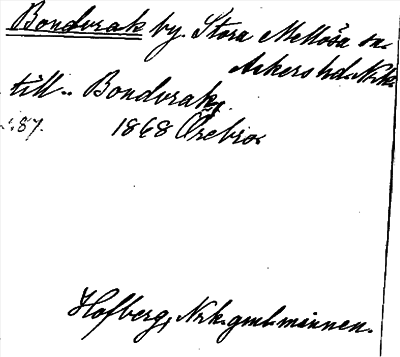 Bondvrak by. Stora Mellösa sn.
Askers hd. Nrke
till.. Bondvrak,
s. 87. 1868 Örebro.
Hofberg, Nrk. gml. minnen.